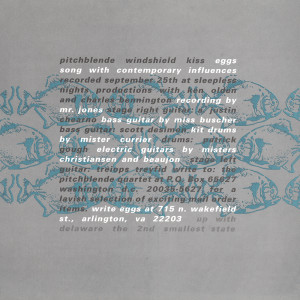 pitchblende windshield kiss eggs
song with contemporary influences
recorded september 25th at sleepless
nights productions with ken olden
and charles bennington recording by
mr. jones stage right guitar: a justin
chearno bass guitar by miss buscher
bass guitar: scott desimon kit drums
by mister currier drums: patrick
gough electric guitars by misters
christiansen and beaujon stage left
guitar: treiops treyfid write to: the
pitchblende quartet at P.O. Box 65627
washington d.c. 20035-5627 for a
lavish selection of exciting mail order
items. write eggs at 715 n. wakefield
st., arlington, va 22203 up with
delaware the 2nd smallest state